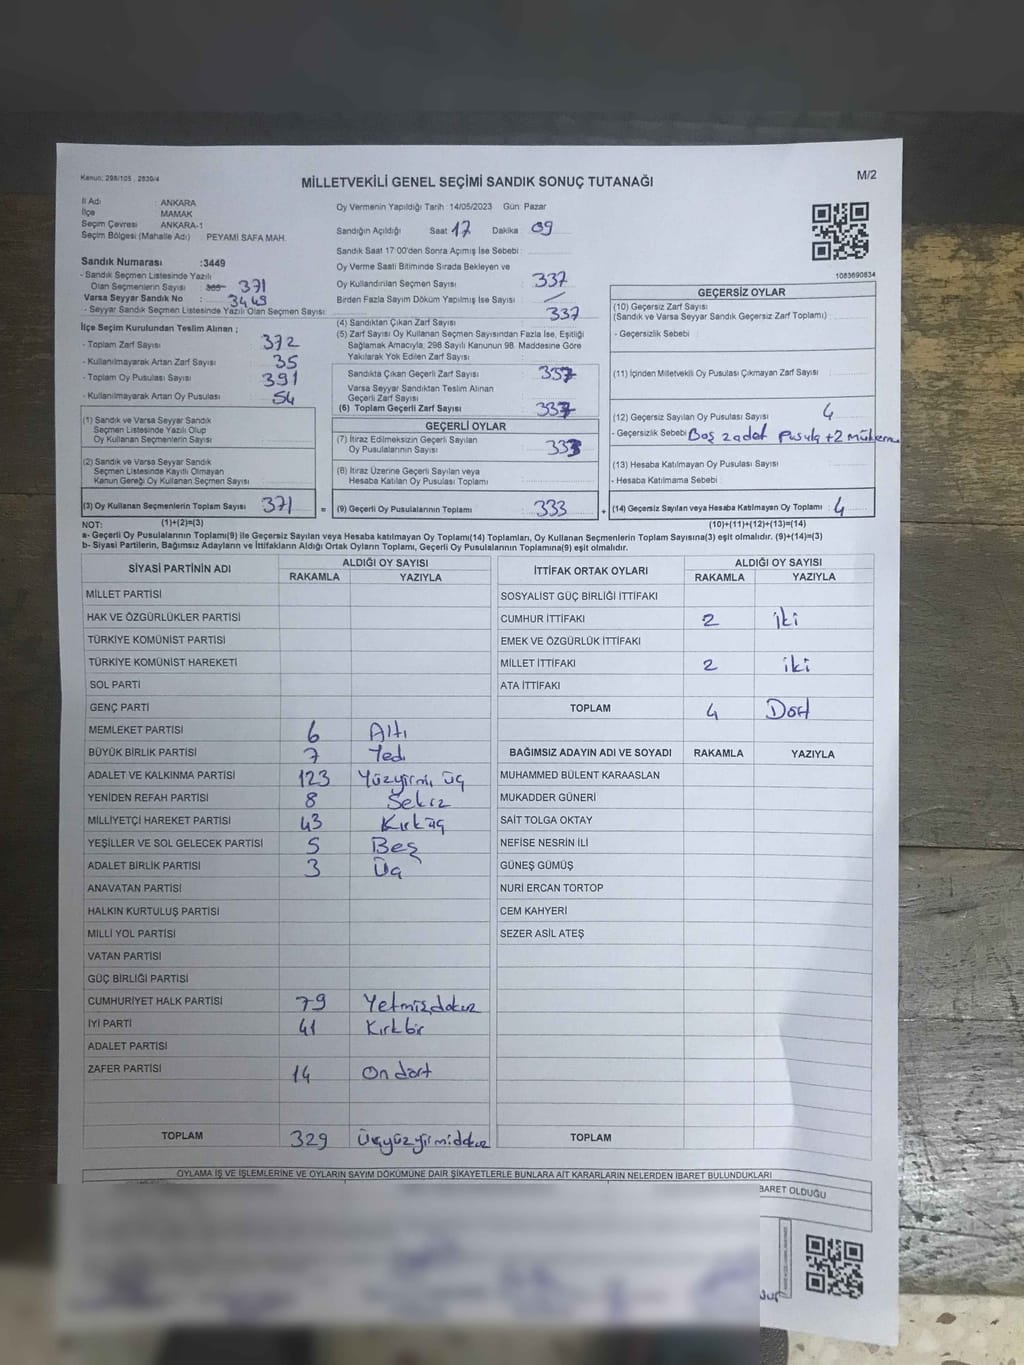 Kanun: 298/105 , 2839/4
MİLLETVEKİLİ GENEL SEÇİMİ SANDIK SONUÇ TUTANAĞI
M/2
İl Adı : ANKARA
İlçe : MAMAK
Seçim Çevresi : ANKARA-1
Seçim Bölgesi (Mahalle Adı) : PEYAMİ SAFA MAH.
Oy Vermenin Yapıldığı Tarih :14/05/2023 Gün: Pazar
Sandığın Açıldığı Saat 17 Dakika 09
Sandık Saat 17:00'den Sonra Açımış İse Sebebi :
Oy Verme Saati Bitiminde Sırada Bekleyen ve
Oy Kullandırılan Seçmen Sayısı : 337
Birden Fazla Sayım Döküm Yapılmış İse Sayısı :
Sandık Numarası :3449
- Sandık Seçmen Listesinde Yazılı
Olan Seçmenlerin Sayısı : 371
Varsa Seyyar Sandık No : 3449
- Seyyar Sandık Seçmen Listesinde Yazılı Olan Seçmen Sayısı:
İlçe Seçim Kurulundan Teslim Alınan ;
- Toplam Zarf Sayısı : 372
- Kullanılmayarak Artan Zarf Sayısı : 35
- Toplam Oy Pusulası Sayısı : 391
- Kullanılmayarak Artan Oy Pusulası : 54
(1) Sandık ve Varsa Seyyar Sandık
Seçmen Listesinde Yazılı Olup
Oy Kullanan Seçmenlerin Sayısı :
(2) Sandık ve Varsa Seyyar Sandık
Seçmen Listesinde Kayıtlı Olmayan
Kanun Gereği Oy Kullanan Seçmen Sayısı :
(3) Oy Kullanan Seçmenlerin Toplam Sayısı : 371
(4) Sandıktan Çıkan Zarf Sayısı : 337
(5) Zarf Sayısı Oy Kullanan Seçmen Sayısından Fazla İse, Eşitliği
Sağlamak Amacıyla, 298 Sayılı Kanunun 98. Maddesine Göre
Yakılarak Yok Edilen Zarf Sayısı :
Sandıkta Çıkan Geçerli Zarf Sayısı : 337
Varsa Seyyar Sandıktan Teslim Alınan
Geçerli Zarf Sayısı :
(6) Toplam Geçerli Zarf Sayısı : 337
GEÇERLİ OYLAR
(7) İtiraz Edilmeksizin Geçerli Sayılan
Oy Pusulalarının Sayısı : 333
(8) İtiraz Üzerine Geçerli Sayılan veya
Hesaba Katılan Oy Pusulası Toplamı :
= (9) Geçerli Oy Pusulalarının Toplamı : 333
1083690834
GEÇERSİZ OYLAR
(10) Geçersiz Zarf Sayısı
(Sandık ve Varsa Seyyar Sandık Geçersiz Zarf Toplamı) :
- Geçersizlik Sebebi :
(11) İçinden Milletvekili Oy Pusulası Çıkmayan Zarf Sayısı :
(12) Geçersiz Sayılan Oy Pusulası Sayısı : 4
- Geçersizlik Sebebi : Boş 2 adet pusula +2
(13) Hesaba Katılmayan Oy Pusulası Sayısı :
- Hesaba Katılmama Sebebi :
+ (14) Geçersiz Sayılan veya Hesaba Katılmayan Oy Toplamı : 4
NOT: (1)+(2)=(3) (10)+(11)+(12)+(13)=(14)
a- Geçerli Oy Pusulalarının Toplamı(9) ile Geçersiz Sayılan veya Hesaba katılmayan Oy Toplamı(14) Toplamları, Oy Kullanan Seçmenlerin Toplam Sayısına(3) eşit olmalıdır. (9)+(14)=(3)
b- Siyasi Partilerin, Bağımsız Adayların ve İttifakların Aldığı Ortak Oyların Toplamı, Geçerli Oy Pusulalarının Toplamına(9) eşit olmalıdır.
SİYASİ PARTİNİN ADI ALDIĞI OY SAYISI
RAKAMLA YAZIYLA
MİLLET PARTİSİ
HAK VE ÖZGÜRLÜKLER PARTİSİ
TÜRKİYE KOMÜNİST PARTİSİ
TÜRKİYE KOMÜNİST HAREKETİ
SOL PARTİ
GENÇ PARTİ
MEMLEKET PARTİSİ 6 Altı
BÜYÜK BİRLİK PARTİSİ 7 Yedi
ADALET VE KALKINMA PARTİSİ 123 Yüzyirmi üç
YENİDEN REFAH PARTİSİ 8 Sekiz
MİLLİYETÇİ HAREKET PARTİSİ 43 Kırküç
YEŞİLLER VE SOL GELECEK PARTİSİ 5 Beş
ADALET BİRLİK PARTİSİ 3 Üç
ANAVATAN PARTİSİ
HALKIN KURTULUŞ PARTİSİ
MİLLİ YOL PARTİSİ
VATAN PARTİSİ
GÜÇ BİRLİĞİ PARTİSİ
CUMHURİYET HALK PARTİSİ 79 Yetmişdokuz
İYİ PARTİ 41 Kırkbir
ADALET PARTİSİ
ZAFER PARTİSİ 14 On dört
TOPLAM 329 Üçyüzyirmidokuz
İTTİFAK ORTAK OYLARI ALDIĞI OY SAYISI
RAKAMLA YAZIYLA
SOSYALİST GÜÇ BİRLİĞİ İTTİFAKI
CUMHUR İTTİFAKI 2 iki
EMEK VE ÖZGÜRLÜK İTTİFAKI
MİLLET İTTİFAKI 2 iki
ATA İTTİFAKI
TOPLAM 4 Dört
BAĞIMSIZ ADAYIN ADI VE SOYADI RAKAMLA YAZIYLA
MUHAMMED BÜLENT KARAASLAN
MUKADDER GÜNERİ
SAİT TOLGA OKTAY
NEFİSE NESRİN İLİ
GÜNEŞ GÜMÜŞ
NURİ ERCAN TORTOP
CEM KAHYERİ
SEZER ASİL ATEŞ
TOPLAM
OYLAMA İŞ VE İŞLEMLERİNE VE OYLARIN SAYIM DÖKÜMÜNE DAİR ŞİKAYETLERLE BUNLARA AİT KARARLARIN NELERDEN İBARET BULUNDUKLARI
İBARET OLDUĞU